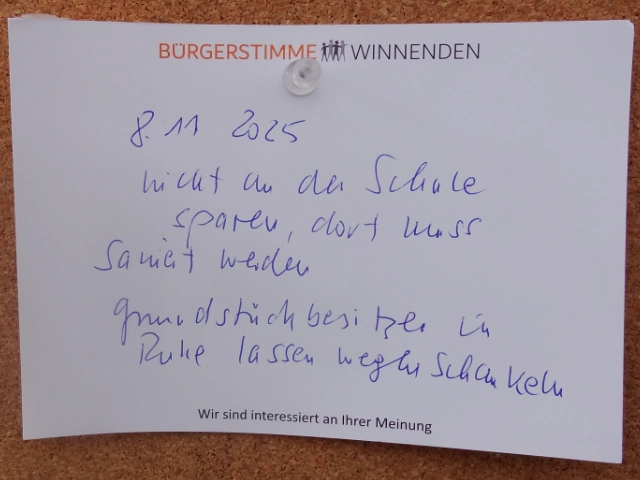 BÜRGERSTIMME WINNENDEN
8.11 2025
nicht an der Schule
sparen, dort muss
Saniert werden
grundstückbesitzer in
Ruhe lassen wegen Schaukeln
Wir sind interessiert an Ihrer Meinung